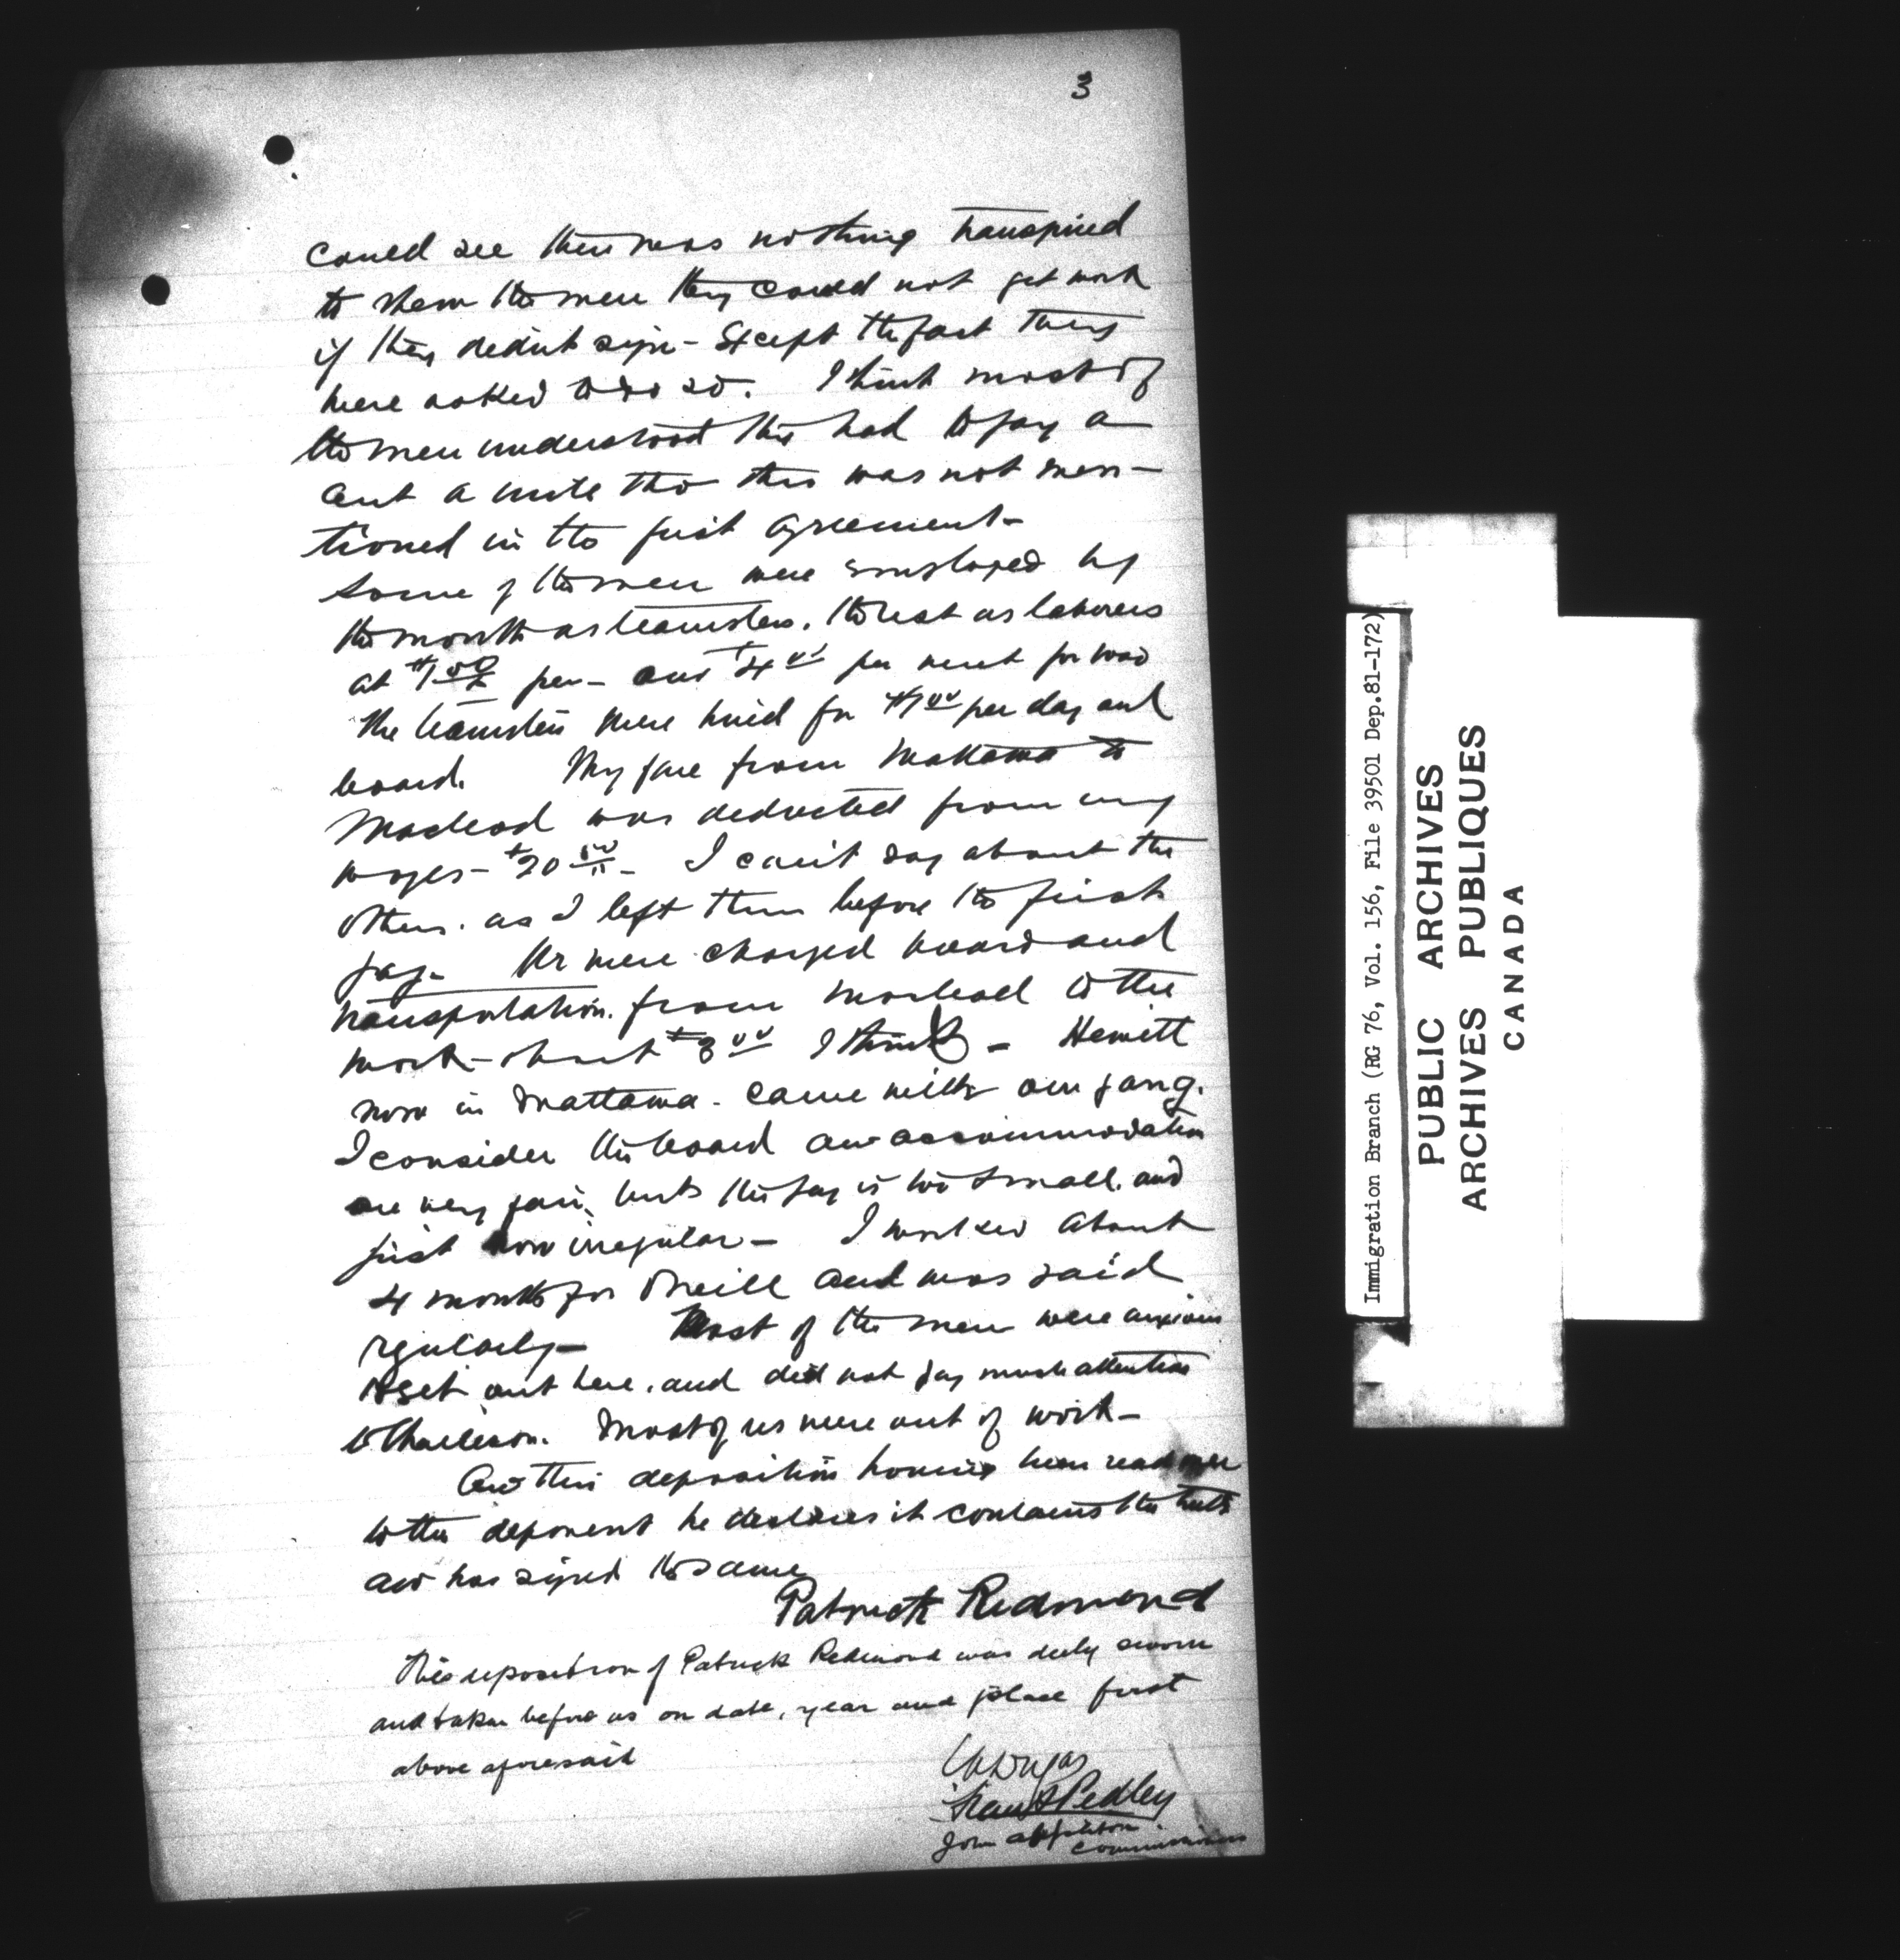 3
could see there was nothing transpired
to show the men they could not get work
if they didn't sign - Except the fact they
were asked to do so. I think most of
the men understood they had to pay a
cent a mile tho this was not men-
tioned in the first agreement-
Some of the men were employed by
the month as teamsters. the rest as laborers
at $1.50 per - and $4.00 per week for board
The teamsters were hired for $1.00 per day and
board. My fare from Mattawa to
Macleod was deducted from my
wages - $20 - I can't say about the
others. as I left them before the first
pay - We were charged board and
transportation. from Macleod to the
work - about $3.00 I think - Hewitt
now in Mattawa - came with our gang.
I consider the board and accommodation
are very fair, but the pay is too small, and
just now irregular - I worked about
4 months for Oneill and was paid
regularly - Most of the men were anxious
to get out here, and did not pay much attention
to Mr. Most of us were out of work -
And this deposition having been read over
to the deponent he declares it contains the truth
and has signed the same
Patrick Redmond
This deposition of Patrick Redmond was duly sworn
and taken before us on date, year and place first
above aforesaid
CA Dugas
Frank Pedley
John Appleton
Commissioners
Immigration Branch (RG 76, Vol. 156, File 39501 Dep.81-172)
PUBLIC ARCHIVES
ARCHIVES PUBLIQUES
CANADA